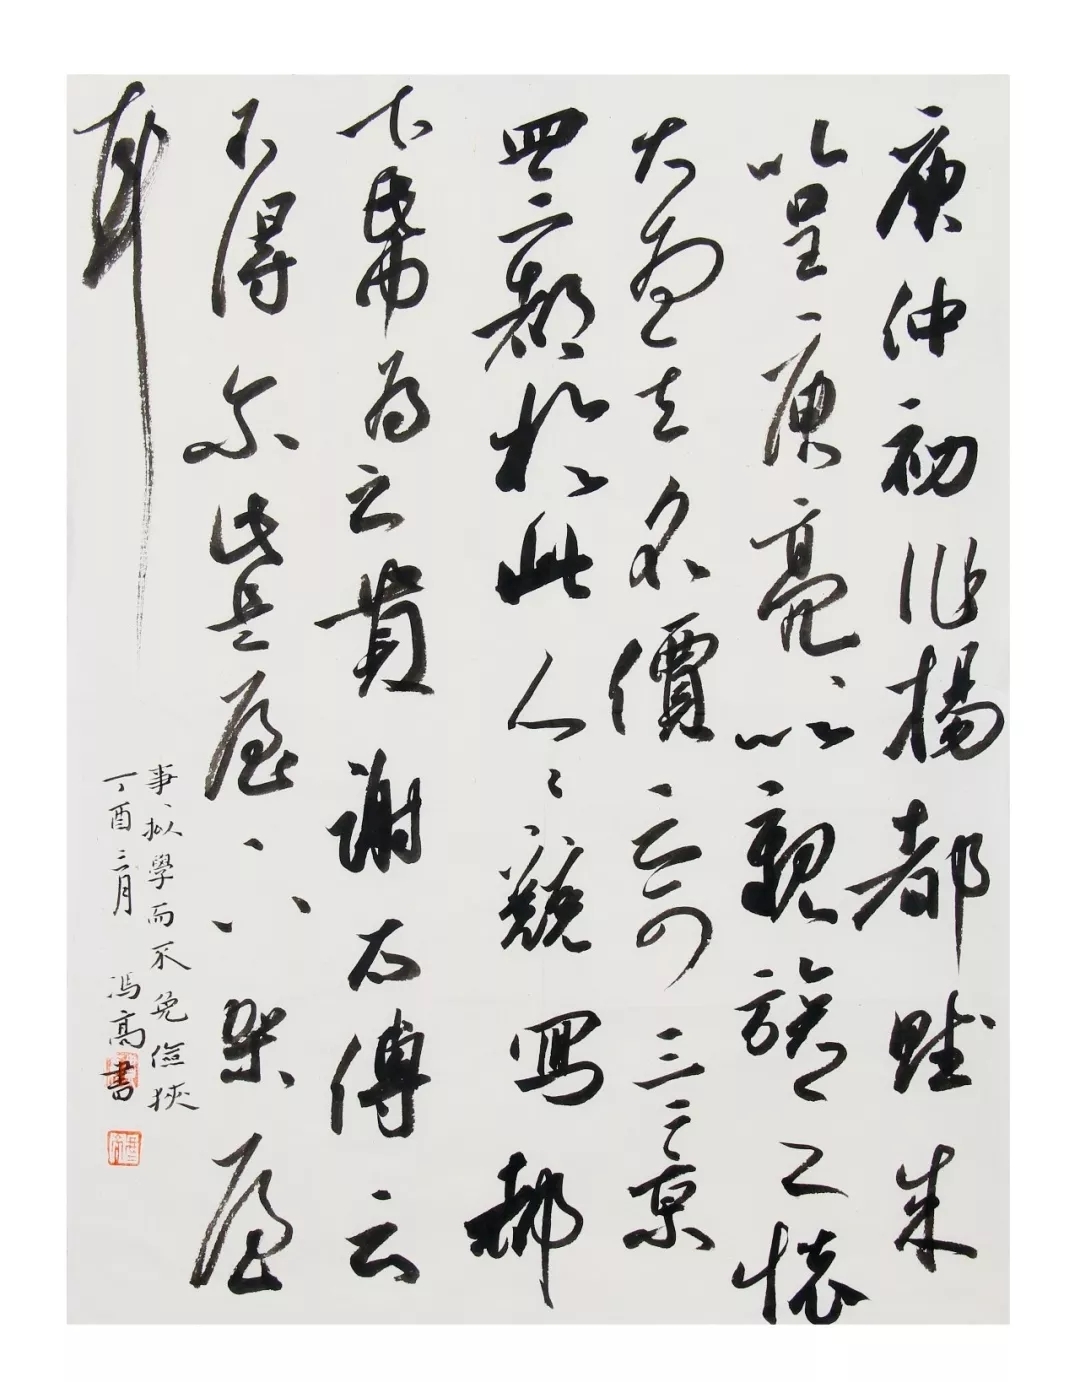 庾仲初作揚都賦成
以呈庾亮々以親族之懷
大為其名價云可三二京
四三都於此人々競寫都
下帋為之貴謝太傅云
不得尔此是屋下架屋
耳
事々擬學而不免儉狹
丁酉三月 馮高書